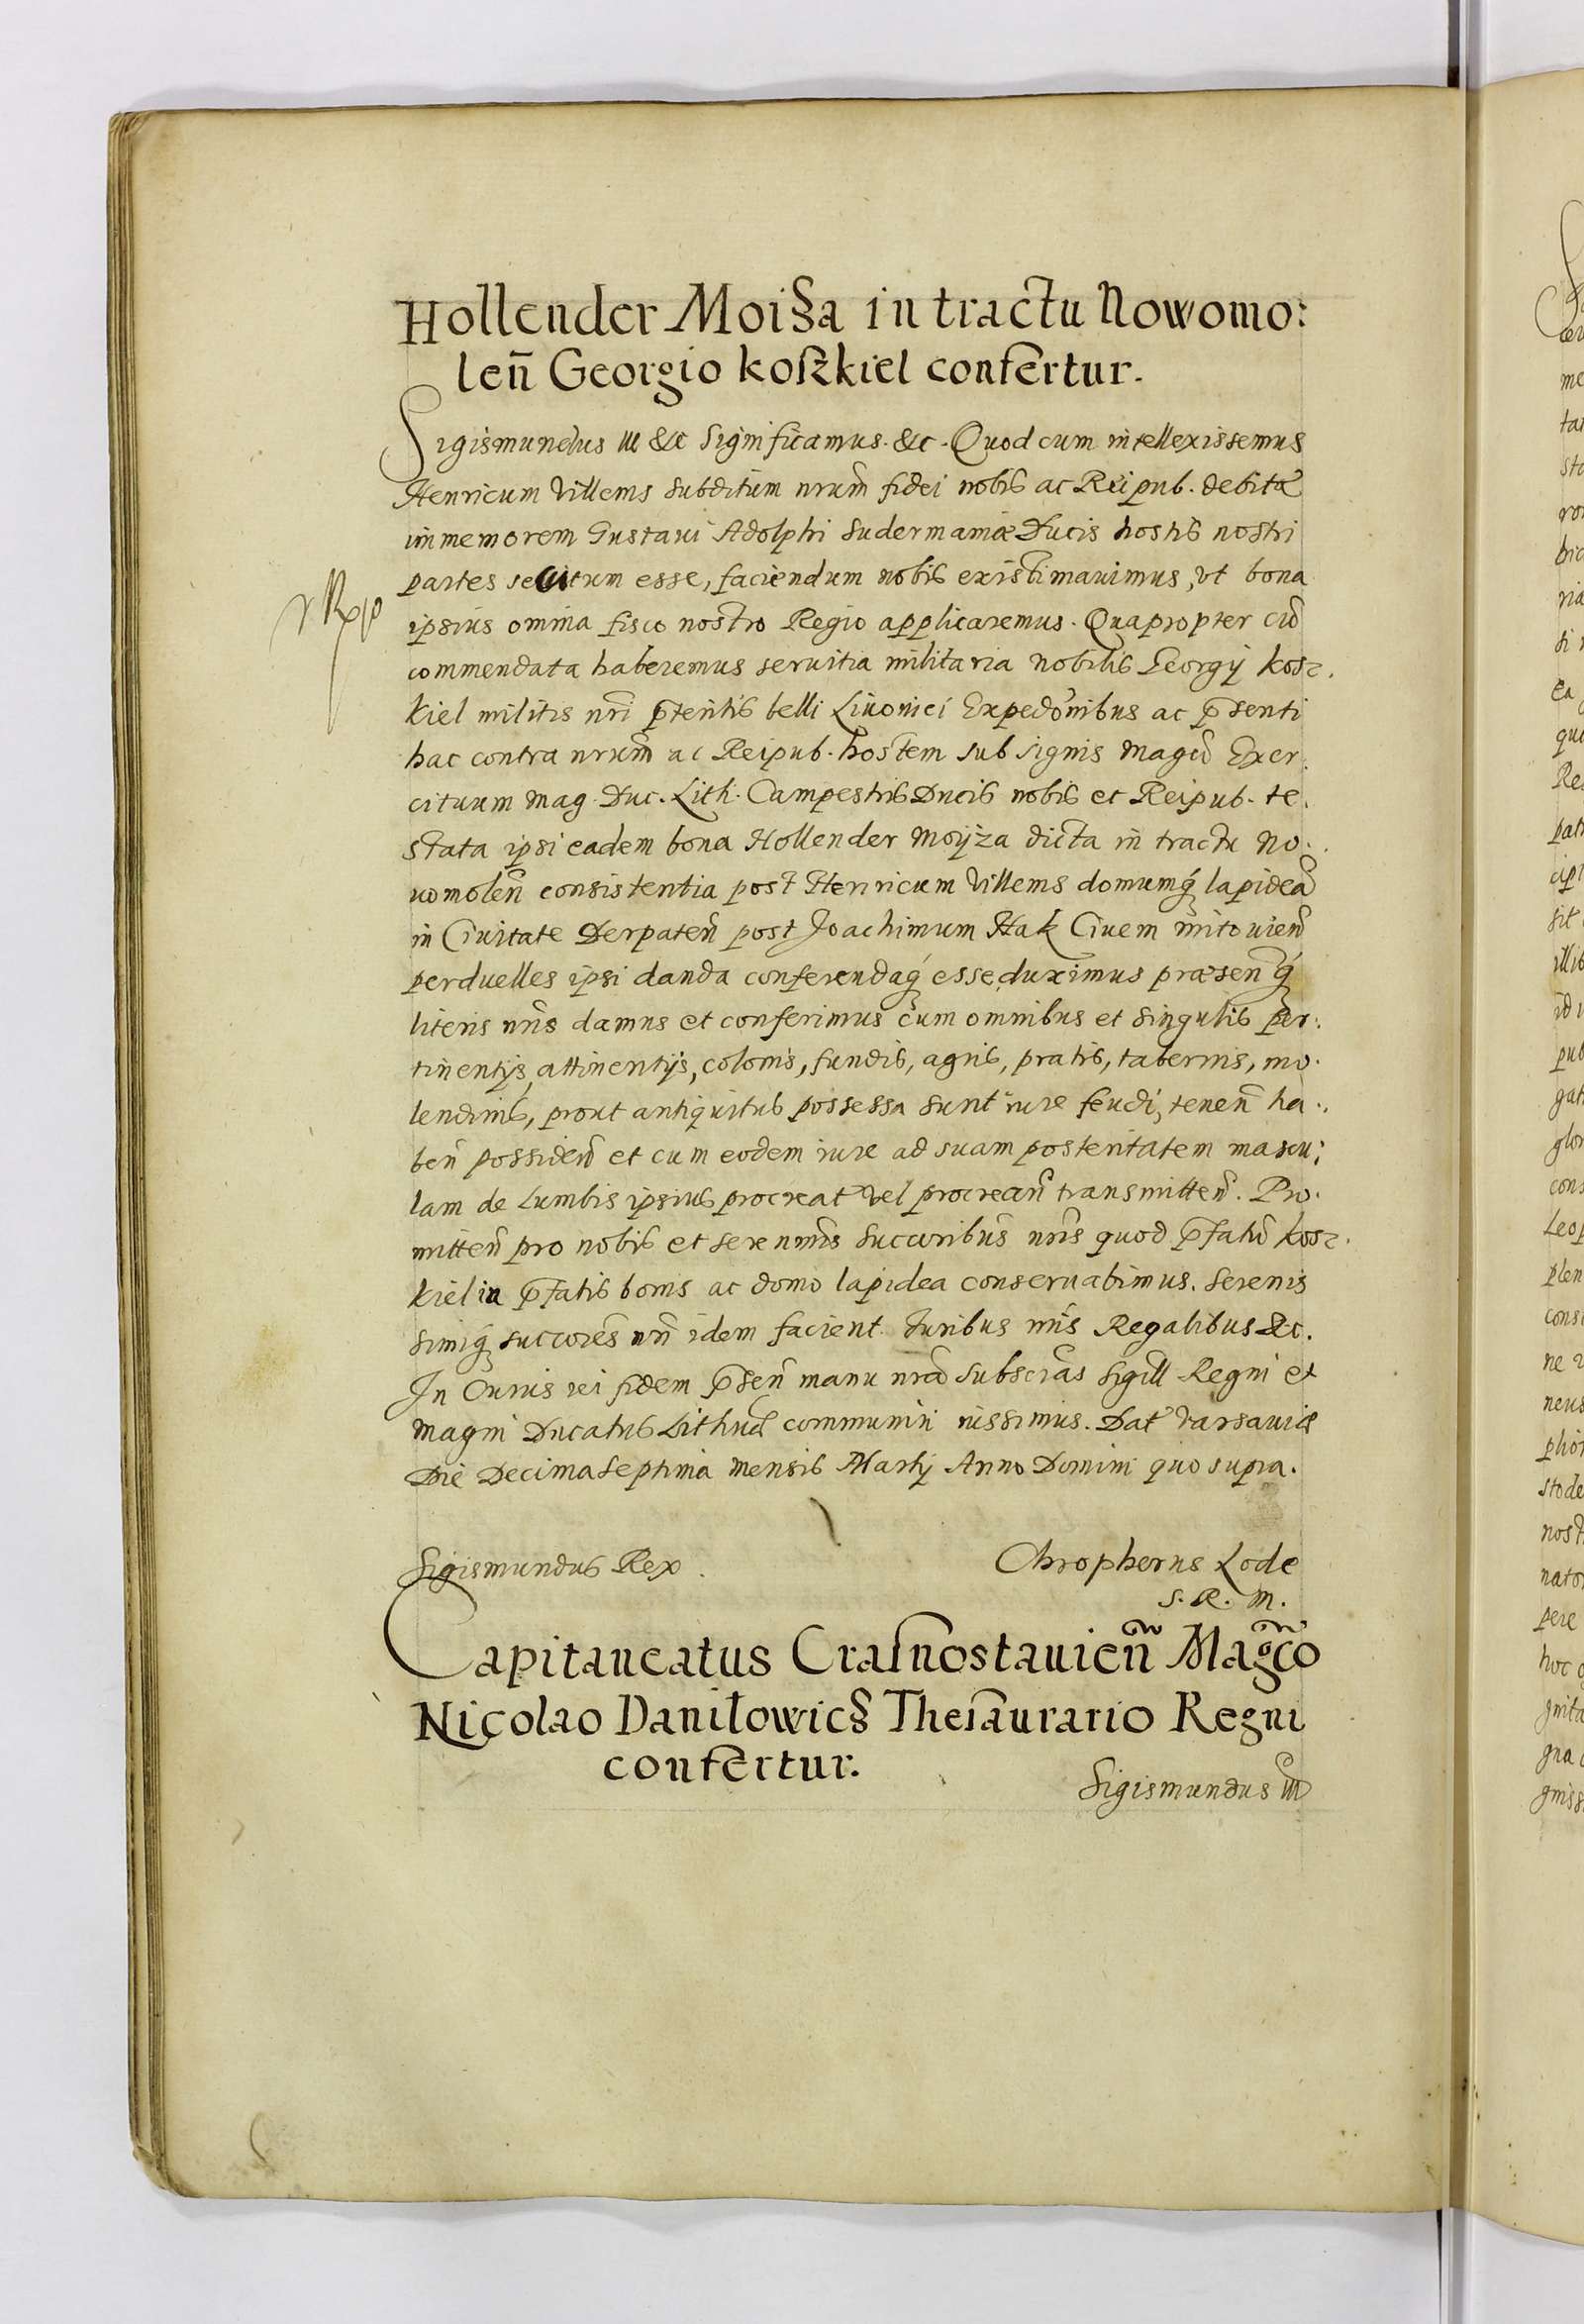 Hollender Moi§a in tractu Nowomo:
len̄ Georgio koszkiel confertur.
Sigismundus III &c Significamus. &c. Quod cum intellexissemus
Henricum Villems subditum nrum̄ fidei nobis ac Reipub. debitæ
immemorem Gustaui Adolphi Sudermaniæ Ducis hostis nostri
partes secutum esse, faciendum nobis existimauimus, vt bona
ipsius omnia fisco nostro Regio applicaremus. Quapropter cū
commendata haberemus seruitia militaria nobilis Georgij kosz.
kiel militis nr̄i p̄teritis belli Liuonici Expedōnibus ac p̄senti
hac contra nrum̄ ac Reipub. hostem sub signis Magci Exer.
cituum Mag. Duc. Lith. Campestris Ducis nobis et Reipub. te.
stata ipsi eadem bona Hollender Moyza dicta in tractu No.
uomolen̄ consistentia post Henricum Villems domumq́ lapideā
in Ciuitate Derpaten̄ post Joachimum Hak Ciuem mitouien̄
perduelles ipsi danda conferendaq́ esse duximus præsen̄q́
literis nr̄is damus et conferimus cum omnibus et singulis per.
tinentijs, attinentijs, colonis, fundis, agris, pratis, tabernis, mo.
lendinis, prout antiquitus possessa sunt iure feudi, tenen̄ ha.
ben̄ possiden̄ et cum eodem iure ad suam posteritatem mascu:
lam de Lumbis ipsius procreat̄ vel procrean̄ transmitten̄. Pro.
mitten̄ pro nobis et serenmis̄ succoribus̄ nr̄is quod p̄fatū kosz.
kiel in p̄fatis bonis ac domo lapidea conseruabimus. Serenis
simiq́ succores̄ nr̄i idem facient. Juribus nr̄is Regalibus &c.
In Cuius rei fidem p̄sen̄ manu nrā subscrās sigill Regni et
Magni Ducatus Lithuæ communiri iussimus. Dat̄ Varsauiæ
Die Decima Septima Mensis Martij Anno Domini quo supra.
Sigismundus Rex.
Chropherus Lode
S. R. M.
Capitaneatus Crasnostauien̄ Magco
Nicolao Daniłowic§ Thesaurario Regni
confertur.
Sigismundus III